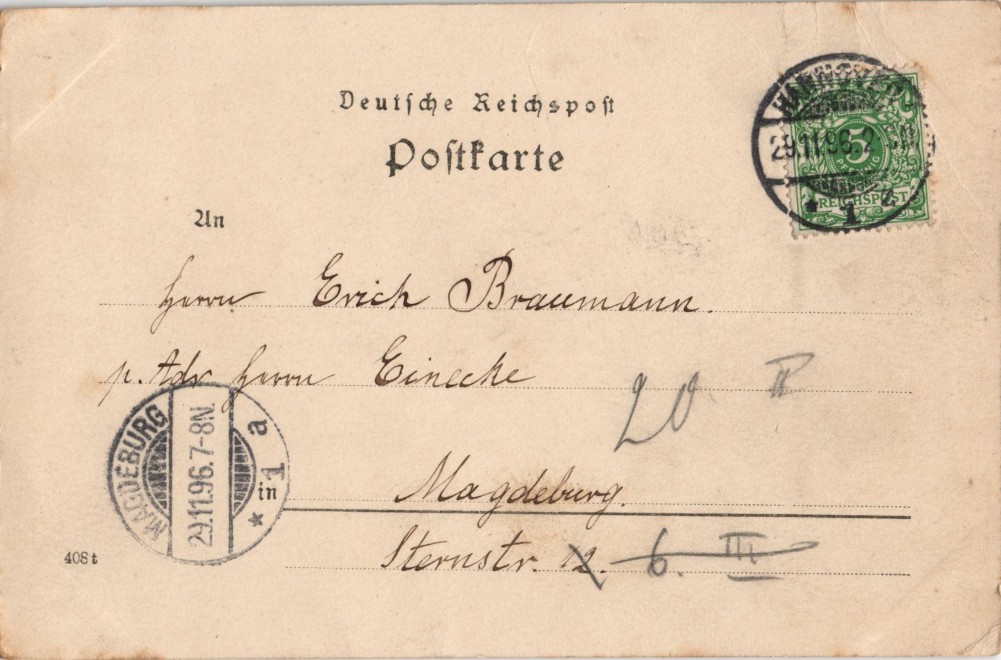 Deutsche Reichspost
Postkarte
HANNOVER
29.11.96.2
* 1 z
5
PFENNIG
REICHSPOST
An
Herrn Erich Braumann.
p. Adr Herrn Einecke
20 II
MAGDEBURG
29.11.96.7-8N.
* 1 a
in Magdeburg.
Sternstr. 12. 6. III
408t